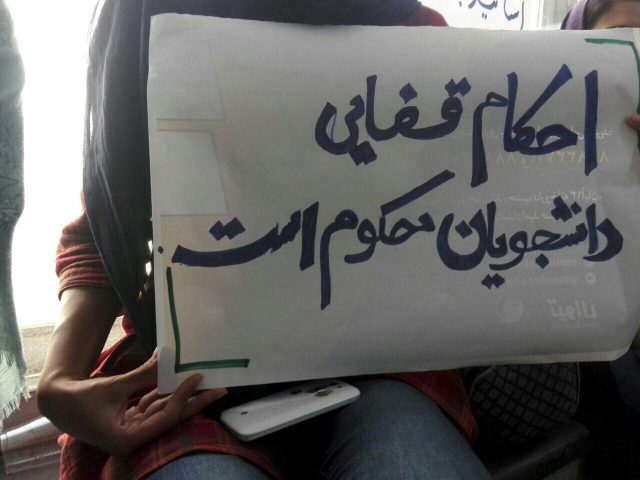 احکام قضایی
دانشجویان محکوم است.